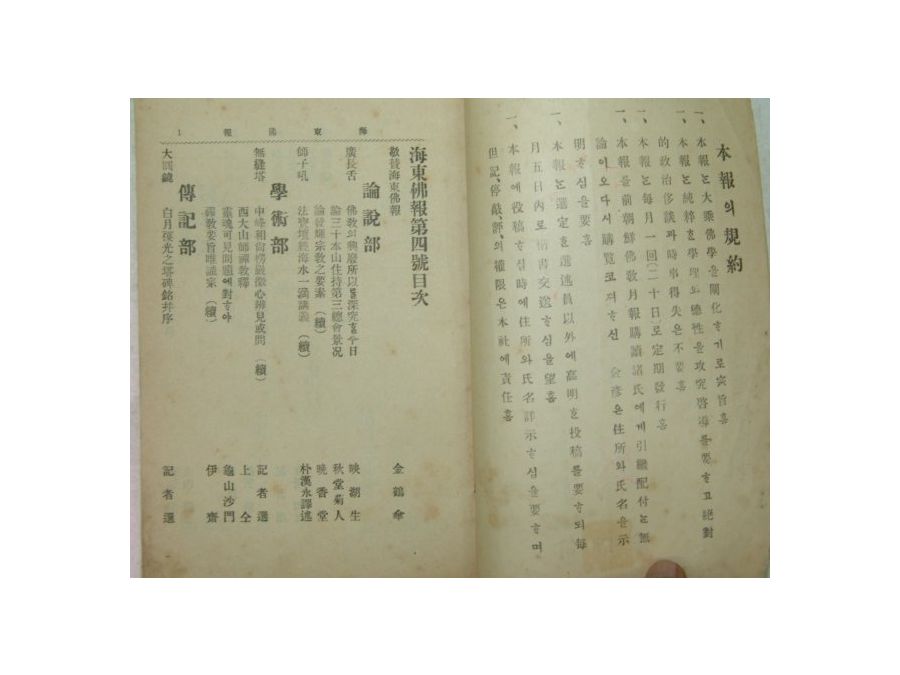 本報의規約
一、本報는大乘佛學을闡化ᄒᆞ기로宗旨홈
一、本報는純粹ᄒᆞᆫ學理와德性을攻究啓導를要ᄒᆞ고絕對
的政治侈談과時事得失은不要홈
一、本報는每月一回(二十日)로定期發行홈
一、本報를前朝鮮佛敎月報購讀諸氏에게引繼配付는無
論이오다시購覽코져ᄒᆞ신 僉彦은住所와氏名을示
明ᄒᆞ심을要홈
一、本報는選定ᄒᆞᆫ選述員以外에高明ᄒᆞᆫ投稿를要ᄒᆞ되每
月五日內로 書交送ᄒᆞ심을望홈
一、本報에投稿ᄒᆞ실時에住所와氏名詳示ᄒᆞ심을要ᄒᆞ며
但記、停載、評의權限은本社에責任홈
海東佛報 1
海東佛報第四號目次
敬贊海東佛報 金鶴傘
論說部
廣長舌 佛敎의興廢所以를深究ᄒᆞᆯ今日 映湖生
論三十本山住持第三總會景况 秋堂菊人
論 宗敎之要素 (續) 晩香堂
師子吼 法寶壇經海水一滴講義 (續) 朴漢永譯述
學術部
無縫塔 中峰和尙楞嚴徵心辨見或問 (續) 記者選
西大山師禪敎釋 上仝
靈魂可見問題에對ᄒᆞ야 龜山沙門
禪敎要旨唯識家 (續) 伊齋
傳記部
大圓鏡 白月 光之塔碑銘幷序 記者選